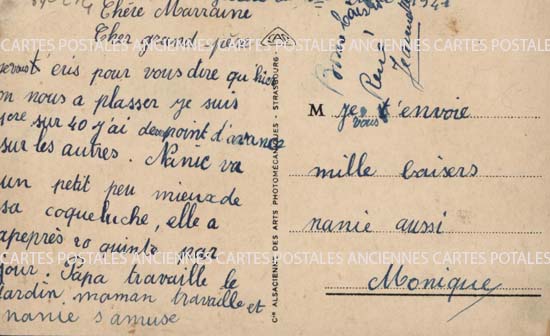 Chère Marraine
Cher grand-père
je vous t'éris pour vous dire qu'hier
on nous a plasser je suis
sur 40 j'ai de point d'avance
sur les autres. Nanic va
un petit peu mieux de
sa coqueluche, elle a
apeprès 20 quinte par
jour. Papa travaille le
jardin maman travaille et
nanie s'amuse
Bons baisers
René
Jeannette
M je t'envoie
vous
mille baisers
nanie aussi
Monique
Cie ALSACIENNE DES ARTS PHOTOMÉCANIQUES - STRASBOURG
CARTES POSTALES ANCIENNES CARTES POSTALES ANCIENNES CARTES POSTALES